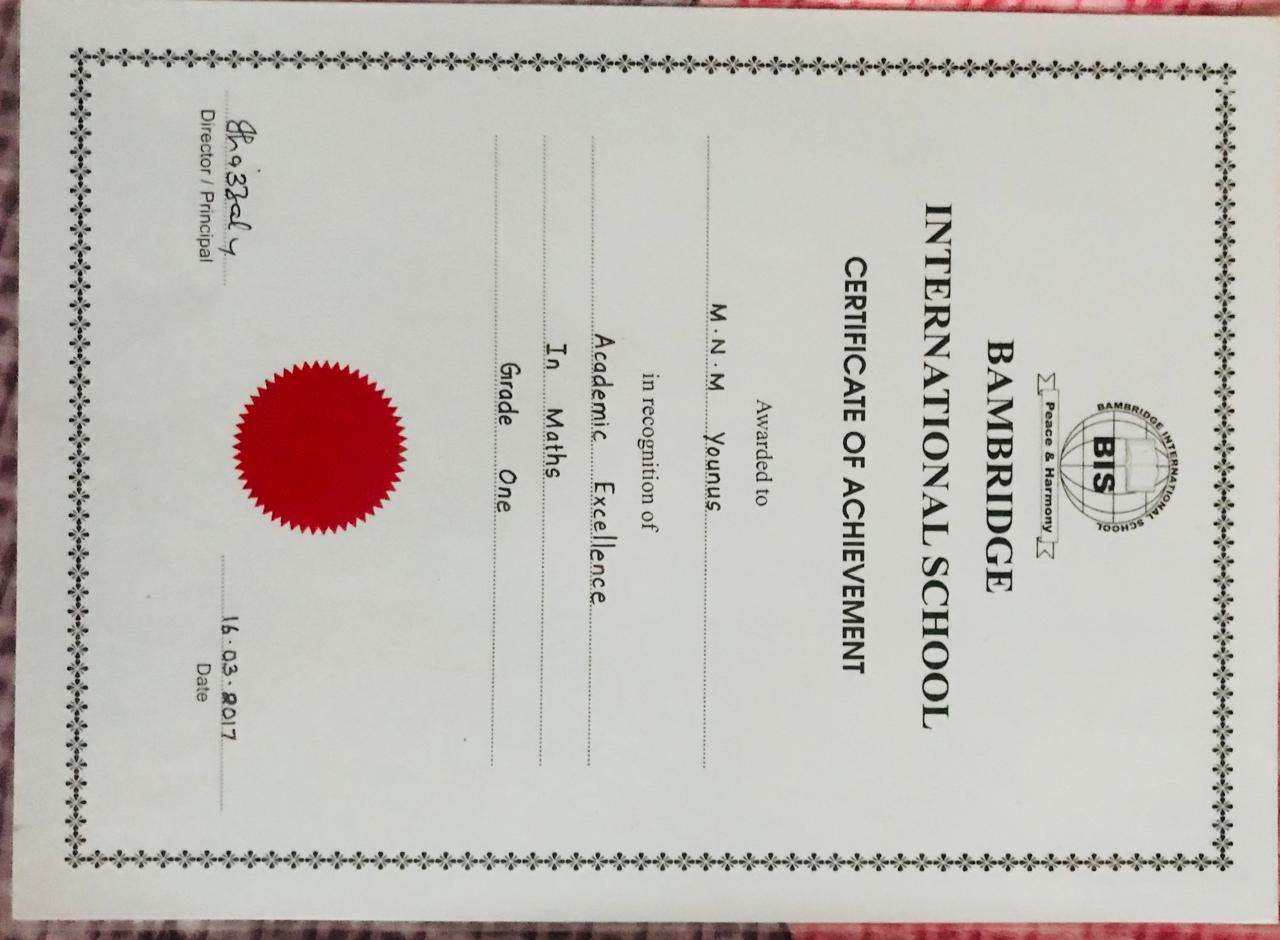 BAMBRIDGE INTERNATIONAL SCHOOL
BIS
Peace & Harmony
BAMBRIDGE
INTERNATIONAL SCHOOL
CERTIFICATE OF ACHIEVEMENT
Awarded to
M.N.M Younus
in recognition of
Academic Excellence
In Maths
Grade One
16.03.2017
Director / Principal
Date